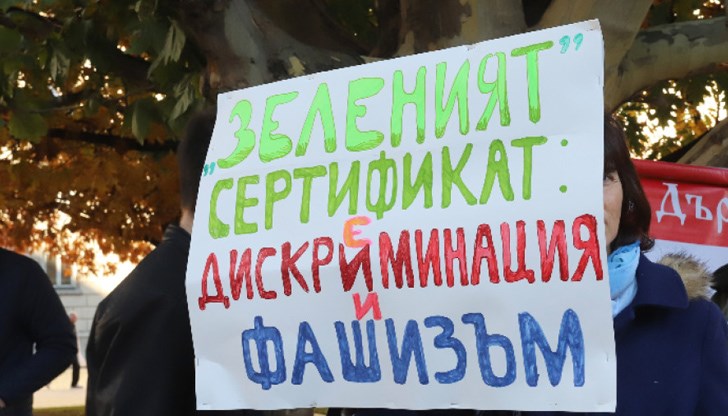 „ЗЕЛЕНИЯТ”
СЕРТИФИКАТ:
Е
ДИСКРИМИНАЦИЯ
И
ФАШИЗЪМ
Дър